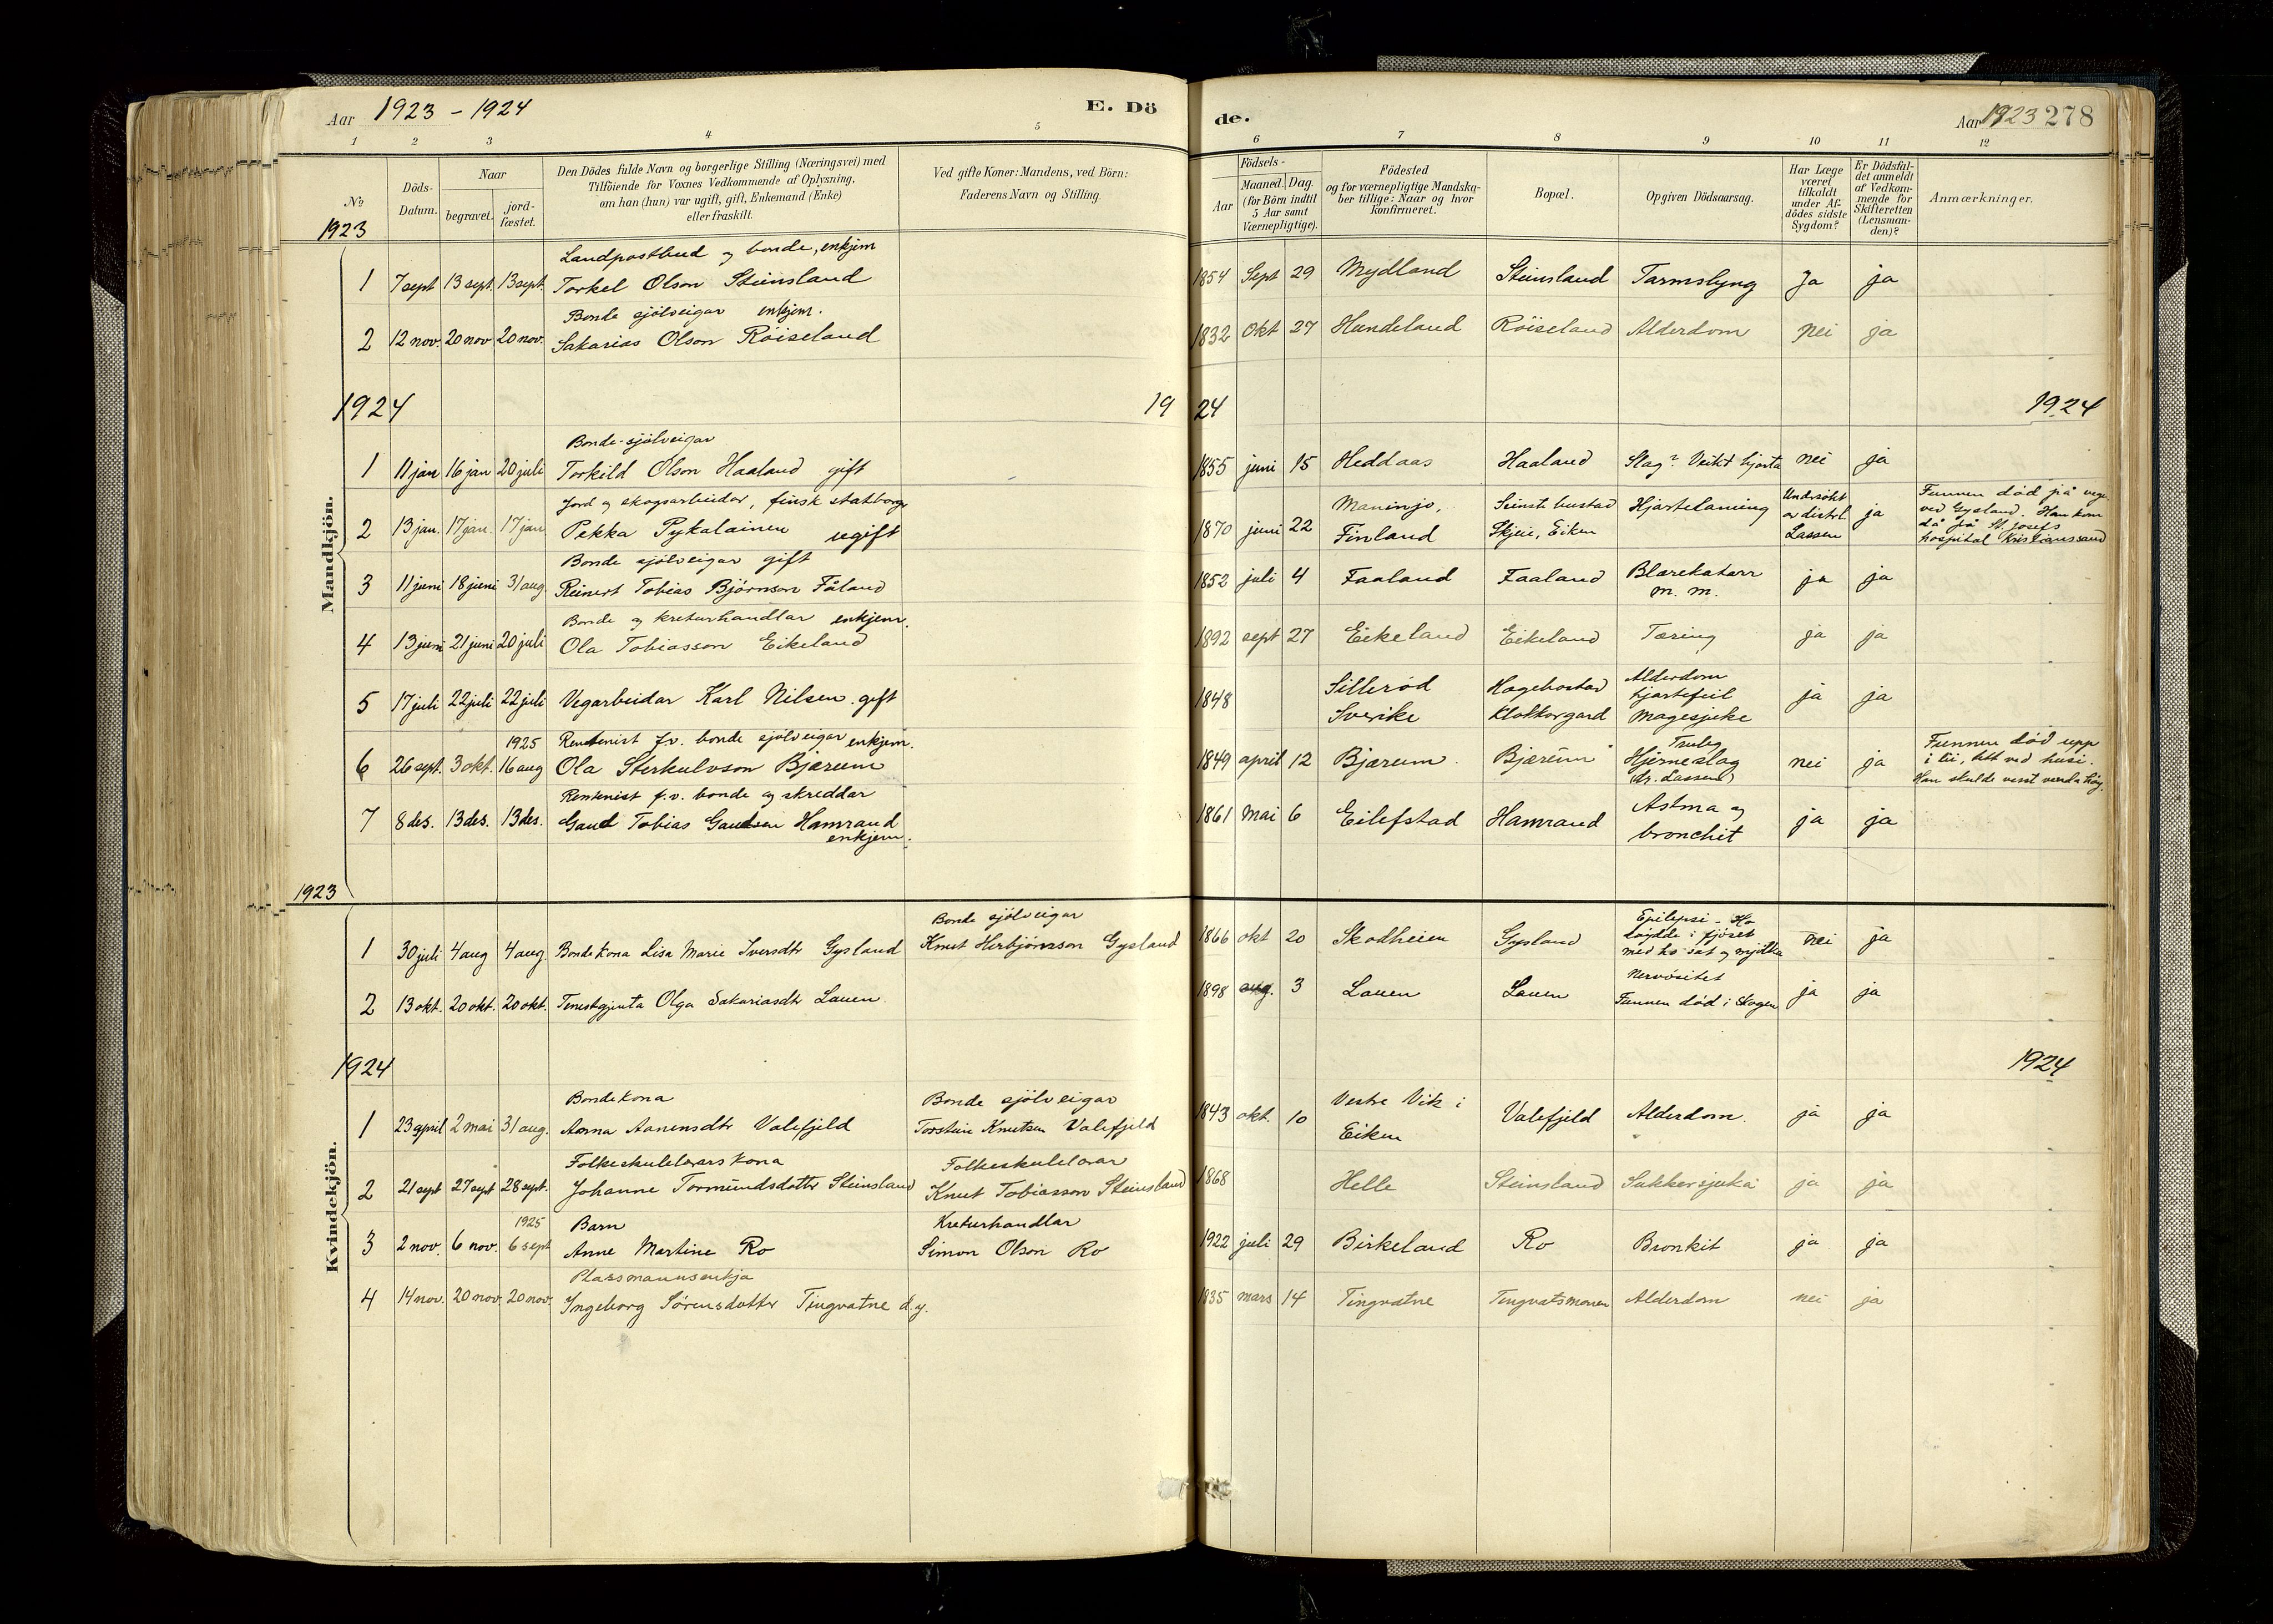 Aar 1923 - 1924
E. Dö
de.
Aar 1923 278
1 2 3 4 5 6 7 8 9 10 11 12
№
Döds-Datum.
Naar
begravet.
jord-fæstet.
Den Dödes fulde Navn og borgerlige Stilling (Næringsvei) med
Tilföiende for Voxnes Vedkommende af Oplysning,
om han (hun) var ugift, gift, Enkemand (Enke)
eller fraskilt.
Ved gifte Koner: Mandens, ved Börn:
Faderens Navn og Stilling.
Födsels-
Aar
Maaned.
Dag.
(for Börn indtil
5 Aar samt
Værnepligtige).
Födested
og for værnepligtige Mandska-
ber tillige: Naar og hvor
konfirmeret.
Bopæl.
Opgiven Dödsaarsag.
Har Læge
været
tilkaldt
under Af-
dödes sidste
Sygdom?
Er Dödsfal-
det anmeldt
af Vedkom-
mende for
Skifteretten
(Lensman-
den)?
Anmærkninger.
Mandkjön.
1923
Landpostbud og bonde, enkjem
1 7 sept 13 sept. 13 sept. Torkel Olson Steinsland 1854 Sept 29 Mydland Steinsland Tarmslyng Ja ja
Bonde sjölveigar enkjem.
2 12 nov. 20 nov 20 nov. Sakarias Olson Röiseland 1832 Okt 27 Hundeland Röiseland Alderdom nei ja
1924 19 24 1924
Bonde-sjölveigar
1 11 jan 16 jan 20 juli Torkild Olson Haaland gift 1855 juni 15 Heddaas Haaland Slag? Veikt hjarta nei ja
Jord og skogsarbeidar, finsk statborg.
2 13 jan. 17 jan. 17 jan Pekka Pykalainen ugift 1870 juni 22 Maninjo, Finland
Skjeie, Eiken
Hjartelaming
Undersökt av distrl. Lassen
ja
Funnen död på veg.
ved Gysland. Han kom
då frå St. Josefs
hospital Kristianssand
Bonde sjölveigar gift
3 11 juni 18 juni 31 aug. Reinert Tobias Björnson Fåland 1852 juli 4 Faaland Faaland Blærekatarr m. m. ja ja
Bonde og kreturhandlar enkjem.
4 13 juni 21 juni 20 juli Ola Tobiasson Eikeland 1892 sept 27 Eikeland Eikeland Tæring ja ja
5 17 juli 22 juli 22 juli Vegarbeidar Karl Nilsen. gift 1848 Silleröd Sverike
Hægebostad Klokkargard
Alderdom hjartefeil magesjuke ja ja
1925 Rentenist fv. bonde sjölveigar enkjem.
6 26 sept. 3 okt. 16 aug Ola Sterkulvson Bjærum 1849 april 12 Bjærum Bjærum
Truleg Hjerneslag (dr. Lassen) nei ja
Funnen död upp
i lii, tett ved husi.
Han skulde
Rentenist f.v. bonde og skreddar
7 8 des. 13 des. 13 des. Gaud Tobias Gaudson Hamrand
enkjem. 1861 Mai 6 Eilefstad Hamrand Astma og bronchit ja ja
Kvindekjön.
1923
Bonde sjölveigar
1 30 juli 4 aug 4 aug. Bondekona Lisa Marie Iversdtr Gysland Knut Herbjörnson Gysland 1866 okt 20 Skodheien Gysland
Epilepsi - Ho
döydde i fjöset
med ho sat og mjölka nei ja
2 13 okt. 20 okt. 20 okt. Tenestgjenta Olga Sakariasdtr Lauen 1898 aug. 3 Lauen Lauen
Nervösitet
Funnen död i skogen ja ja
1924 1924
Bondekona Bonde sjölveigar
1 23 april 2 mai 31 aug. Anna Aanensdtr Valefjeld Torstein Knutsen Valefjeld 1843 okt. 10 Vestre Vik i Eiken Valefjeld Alderdom. ja ja
Folkeskulelærarskona Folkeskulelærar
2 21 sept 27 sept 28 sept. Johanne Tormundsdotter Steinsland Knut Tobiasson Steinsland 1868 Helle Steinsland Sukkersjuka ja ja
1925 Barn Kreturhandlar
3 2 nov. 6 nov. 6 sept Anne Martine Ro Simon Olson Ro 1922 juli 29 Birkeland Ro Bronkit ja ja
Plassmannsenkja
4 14 nov. 20 nov. 20 nov. Ingeborg Sörensdotter Tingvatne d.y. 1835 mars 14 Tingvatne Tingvatsmonen Alderdom nei ja